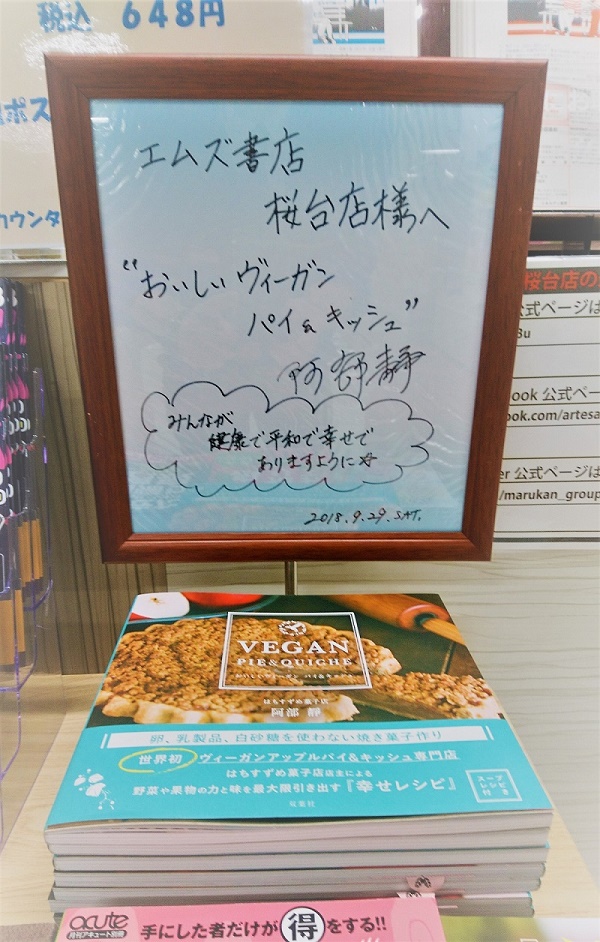 税込 648円
ポス
カウンタ
エムズ書店
桜台店様へ
"おいしいヴィーガン
パイ&キッシュ"
阿部静
みんなが
健康で平和で幸せで
ありますように☆
2018.9.29.SAT.
桜台店の
公式ページは
3u
ook 公式ページ
ook.com/artesa
er 公式ページは
/marukan_group
VEGAN
PIE&QUICHE
おいしいヴィーガン パイ&キッシュ
はちすずめ菓子店
阿部 静
卵、乳製品、白砂糖を使わない焼き菓子作り
世界初 ヴィーガンアップルパイ&キッシュ専門店
はちすずめ菓子店店主による
野菜や果物の力と味を最大限引き出す『幸せレシピ』
スープ
レシピ
付き
双葉社
acute
月刊アキュート別冊
手にした者だけが得をする!!